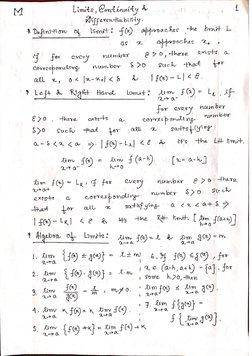 M
1
Limits, Continuity &
Differentiability.
Definition of limit: f(x) approaches the limit L
as x approaches x₀
if for every number ε>0, there exists a
corresponding number δ>0 such that for
all x, 0<|x-x₀|<δ & |f(x)-L|<ε.
Left & Right Hand limit: lim x→a⁻ f(x) = L₁, if
for every number
ε>0, there exists a corresponding number
δ>0 such that for all x satisfying
a-δ<x<a ⇒ |f(x)-L₁|<ε & it's the left limit.
lim x→a⁻ f(x) = lim h→0 f(a-h) [x=a-h]
lim x→a⁺ f(x) = L₂, if for every number ε>0 there
exists a corresponding number δ>0 such
that for all x satisfying a<x<a+δ ⇒
|f(x)-L₂|<ε & it's the right limit. [lim h→0 f(a+h)]
Algebra of Limits: lim x→a f(x)=l & lim x→a g(x)=m
1. lim x→a {f(x) ± g(x)} = l ± m
2. lim x→a {f(x)·g(x)} = l·m
3. lim x→a f(x)/g(x) = l/m, m≠0.
4. lim x→a K f(x) = K lim x→a f(x)
5. lim x→a {f(x)+K} = lim x→a f(x)+K
6. If f(x) ≤ g(x), for
x ∈ (a-h, a+h) - {a}, for
some h>0, then
lim x→a f(x) ≤ lim x→a g(x)
7. lim x→a f{g(x)} =
f{lim x→a g(x)}.